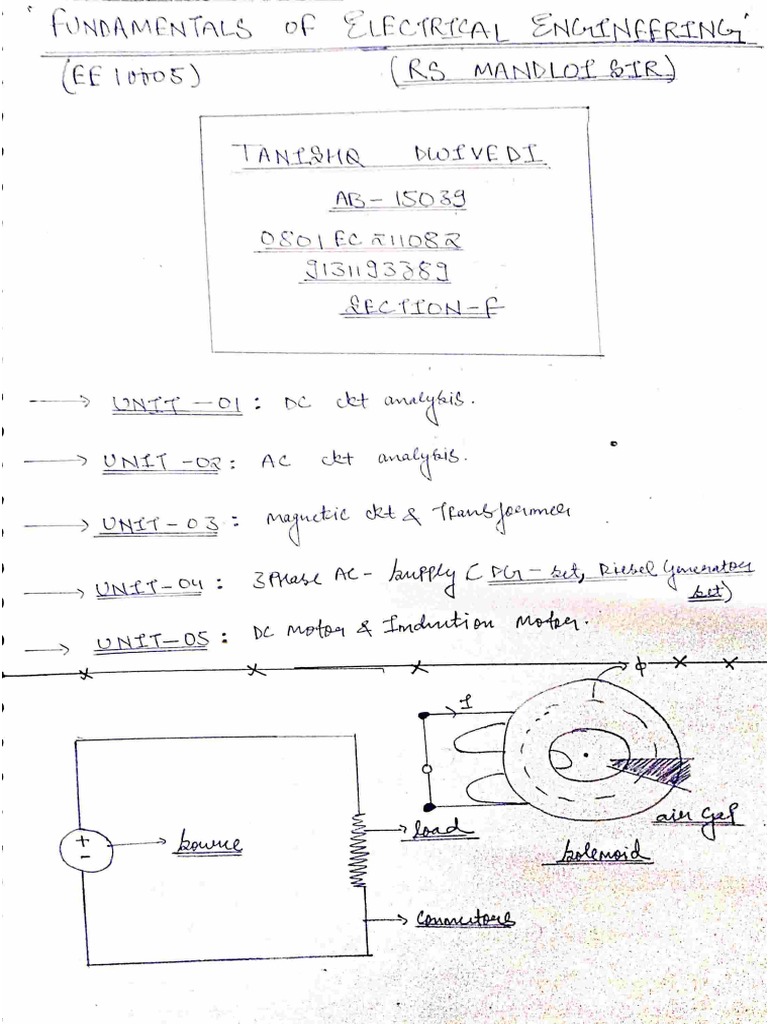 FUNDAMENTALS OF ELECTRICAL ENGINEERING
(EE10005) (RS MANDLOI SIR)
TANISHQ DWIVEDI
AB-15039
0801EC211082
9131193389
SECTION-F
→ UNIT-01: DC ckt analysis.
→ UNIT-02: AC ckt analysis.
→ UNIT-03: Magnetic ckt & Transformer
→ UNIT-04: 3 Phase AC- supply ( DG-set, Diesel Generator
set)
→ UNIT-05: DC Motor & Induction Motor.
ϕ
I
+
-
source
load
air gap
solenoid
connectors